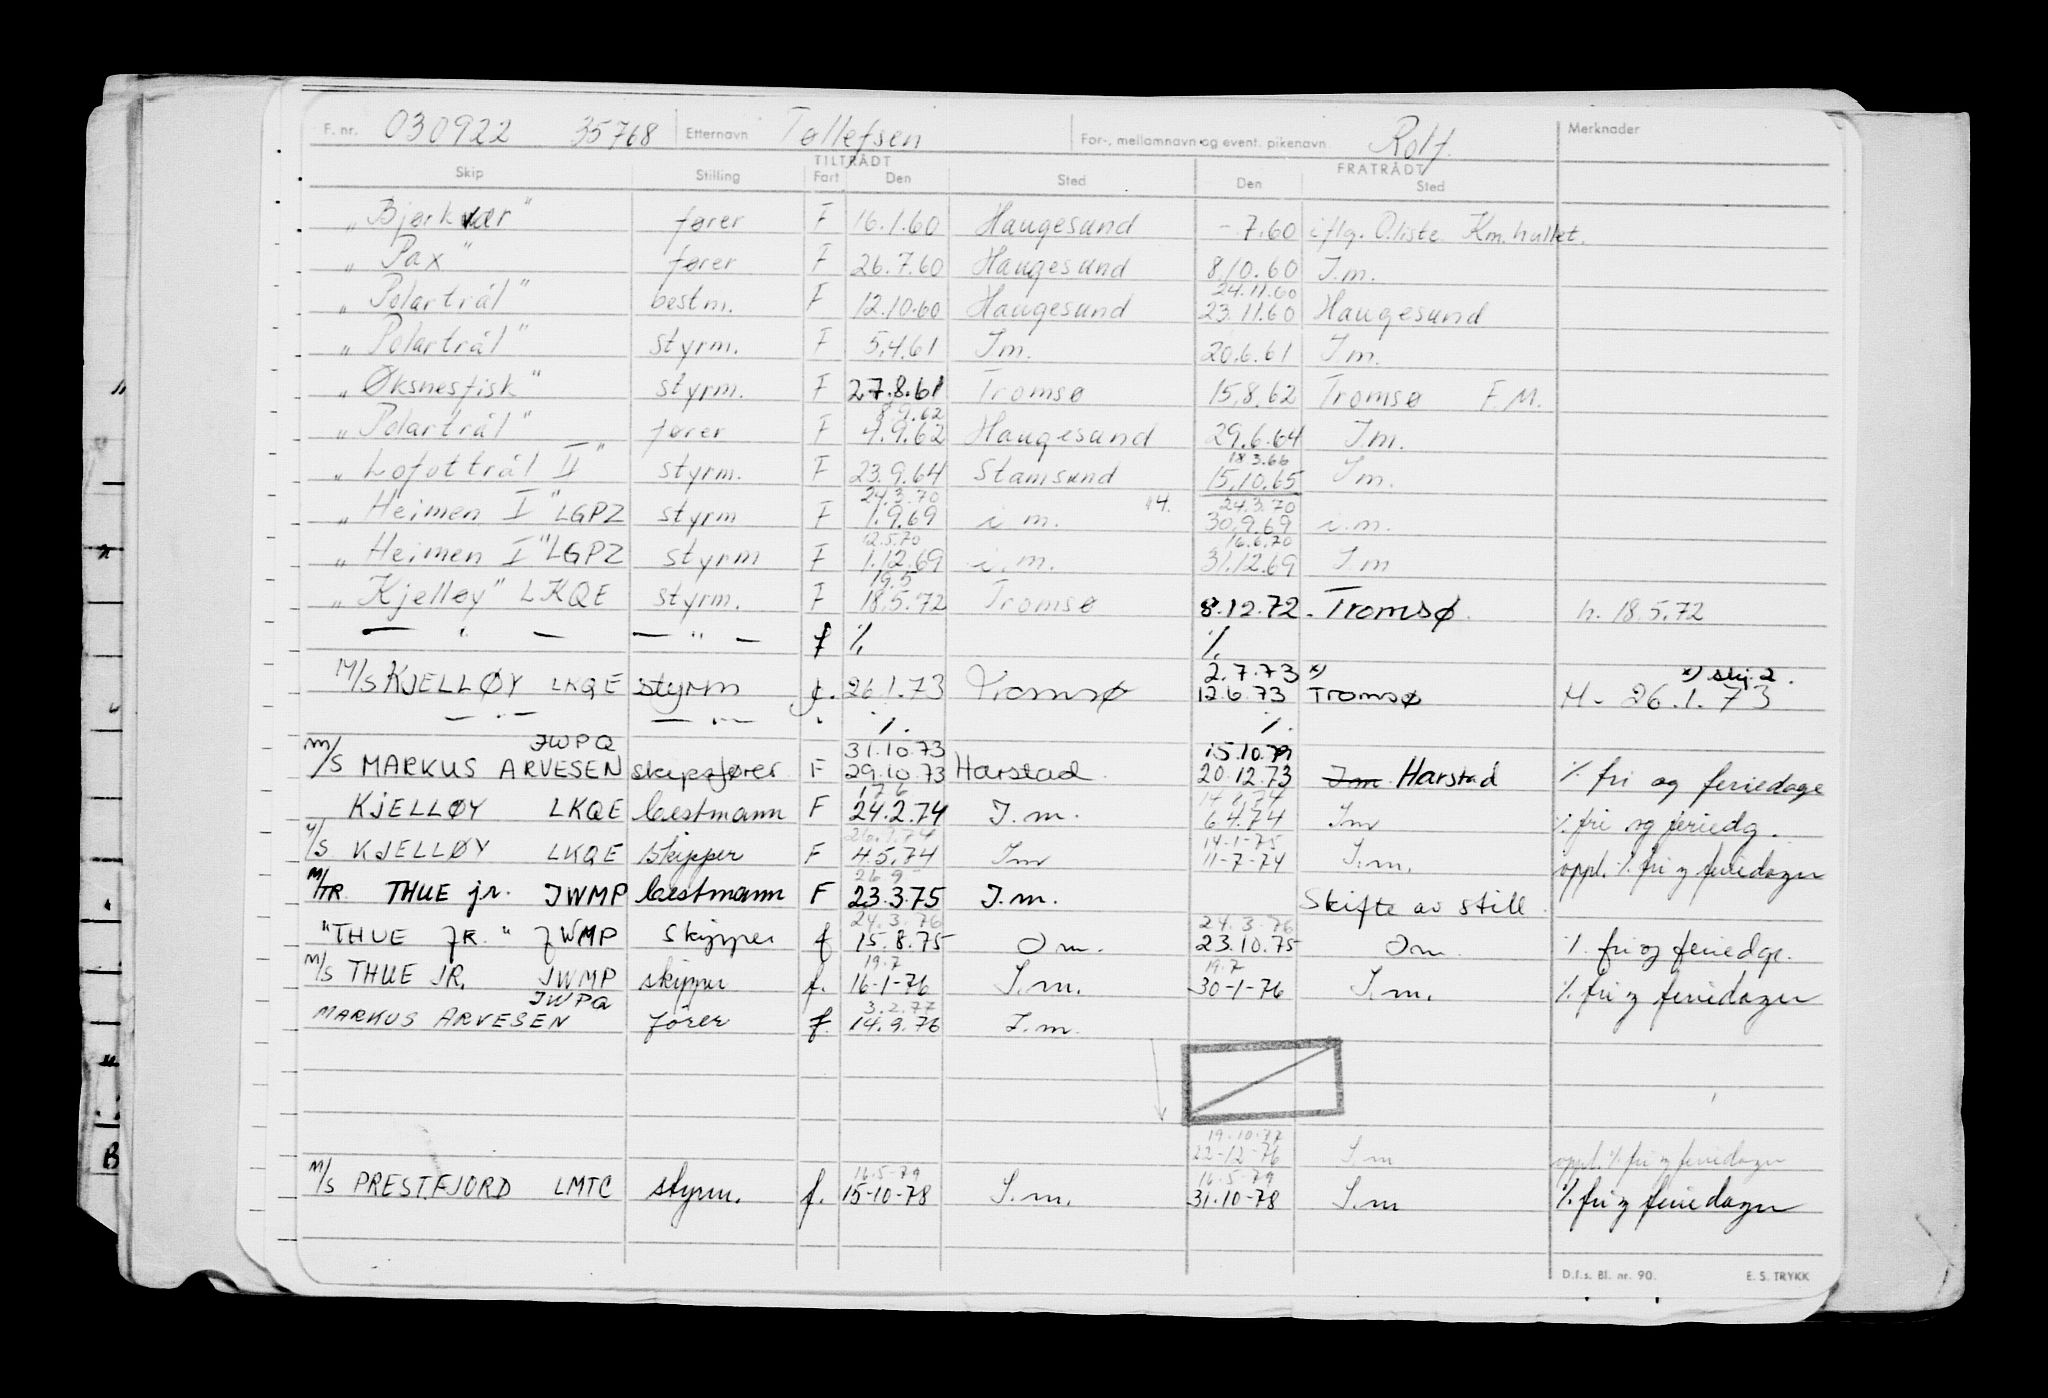 F. nr. 030922 35768 Etternavn Tollefsen For-, mellomnavn og event. pikenavn Rolf. Merknader
TILTRÅDT FRATRÅDT
Skip Stilling Fart Den Sted Den Sted
„Bjerkvær" fører F 16.1.60 Haugesund -.7.60 iflg. O.liste Km.hullet.
„Pax" fører F 26.7.60 Haugesund 8.10.60 I.m.
24.11.60
„Polartrål" bestm. F 12.10.60 Haugesund 23.11.60 Haugesund
„Polartrål" styrm. F 5.4.61 I.m. 20.6.61 I.m.
„Øksnesfisk" styrm. F 27.8.61 Tromsø 15.8.62 Tromsø F.M.
8.9.62
„Polartrål" fører F 4.9.62 Haugesund 29.6.64 I.m.
18.3.66
„Lofottrål II" styrm. F 23.9.64 Stamsund 15.10.65 I.m.
24.3.70 24.3.70
„Heimen I" LGPZ styrm F 1.9.69 i.m. 30.9.69 i.m.
12.5.70 16.6.70
„Heimen I" LGPZ styrm F 1.12.69 i.m. 31.12.69 I.m
19.5
„Kjelløy" LKQE styrm. F 18.5.72 Tromsø 8.12.72 - Tromsø. h. 18.5.72
— " — — " — f ⁒ ⁒
2.7.73 x) x) skj. 2.
M/S KJELLØY LKQE styrm f. 26.1.73 Tromsø 12.6.73 Tromsø H - 26.1.73
— " — — " — " ⁒ ⁒
JWPQ 31.10.73 15.10.79
M/S MARKUS ARVESEN skipsfører F 29.10.73 Harstad 20.12.73 I.m Harstad ⁒ fri og feriedage
17.6 14.8.74
KJELLØY LKQE bestmann F 24.2.74 I.m. 6.4.74 Im ⁒ fri og feriedg.
26.8.74 14-1-75
M/S KJELLØY LKQE skipper F 4.5.74 Im 11-7-74 I.m. oppl. ⁒ fri og feriedager
26.9
M/TR. THUE jr. JWMP bestmann F 23.3.75 I.m. Skifte av still.
24.3.76 24.3.76
"THUE JR." JWMP Skipper f 15.8.75 Im. 23.10.75 Im. ⁒ fri og feriedgr.
19.7 19.7
M/S THUE JR. JWMP skipper f. 16-1-76 I.m. 30-1-76 I.m. ⁒ fri og feriedager
JWPQ 3.2.77
MARKUS ARVESEN fører f. 14.9.76 I.m.
19.10.77
22-12-76 I.m oppl. ⁒ fri og feriedager
16.5-79 16.5-79
M/S PRESTFJORD LMTC styrm. f. 15-10-78 I.m. 31.10-78 I.m ⁒ fri og feriedager
D.f.s. Bl. nr. 90. E. S. TRYKK
B